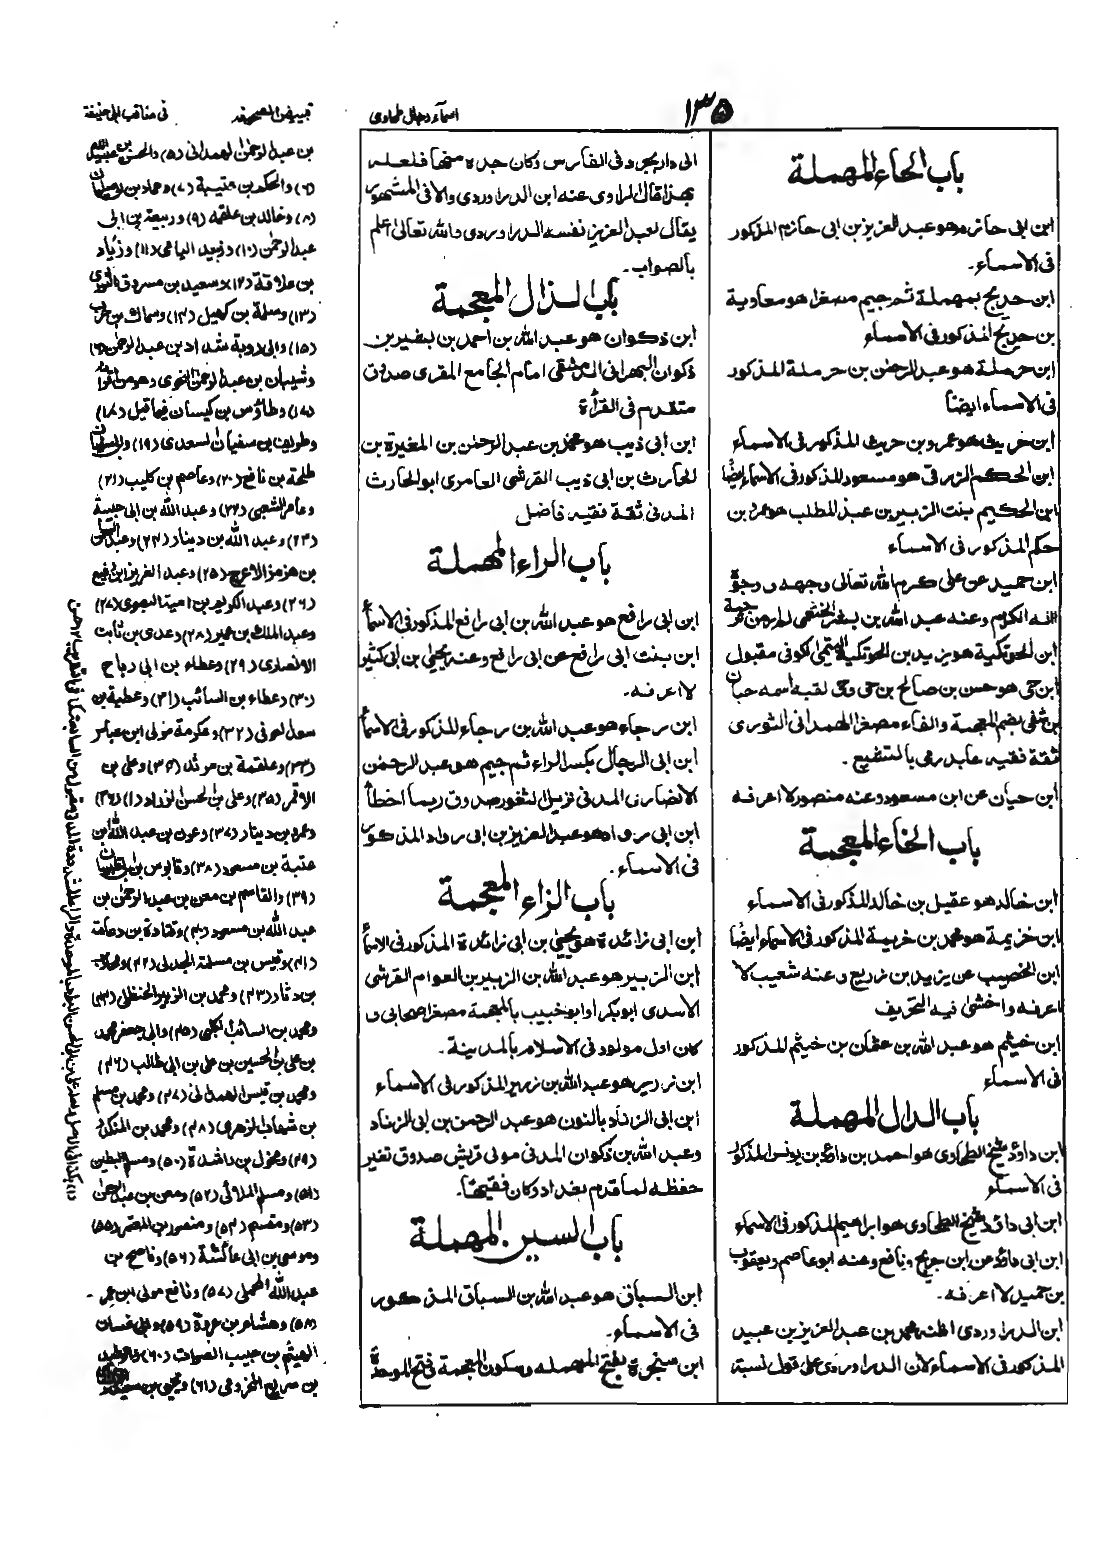 ١٣٥
اسماء رجال طحاوى
باب الحاء المهملة
ابن ابى حازم هو عبد العزيز بن ابى حازم المذكور
فى الاسماء۔
ابن حديج بمهملة ثم جيم مصغرا هو معاوية
بن حديج المذكور فى الاسماء
ابن حرملة هو عبد الرحمٰن بن حرملة المذكور
فى الاسماء ايضا
ابن حريث هو عمرو بن حريث المذكور فى الاسماء
ابن الحكم الزرقى هو مسعود المذكور فى الاسماء ايضا
ابن الحكيم بنت الزبير بن عبد المطلب هو عمر بن
حكم المذكور فى الاسماء
ابن حميد عن على كرم الله تعالى وجهه و وجوه
اٰله الكرام وعنه عبد الله بن بشر الخثعمى
ابن الحوتكية هو يزيد بن الحوتكية التميمى الكوفى مقبول
ابن حى هو حسن بن صالح بن حى وحى لقبه اسمه حيان
بن شفى بضم المعجمة والفاء مصغرا الهمدانى الثورى
ثقة فقيه عابد رمى بالتشيع ۔
ابن حيان عن ابن مسعود وعنه منصور لا اعرفه
باب الخاء المعجمة
ابن خالد هو عقيل بن خالد المذكور فى الاسماء
ابن خزيمة هو محمد بن خزيمة المذكور فى الاسماء ايضا
ابن الخصيب عن يزيد بن زريع وعنه شعيب لا
اعرفه واخشى فيه التحريف
ابن خيثم هو عبد الله بن عثمان بن خيثم المذكور
فى الاسماء
باب الدال المهملة
ابن داؤد شيخ الطحاوى هو احمد بن داؤد بن يونس المذكور
فى الاسماء
ابن ابى داؤد شيخ الطحاوى هو ابراهيم المذكور فى الاسماء
ابن ابى داؤد عن ابن جريج و نافع وعنه ابو عاصم ويعقوب
بن حميد لا اعرفه۔
ابن الدراوردى اظنه محمد بن عبد العزيز بن عبيد
المذكور فى الاسماء لان الدراوردى على قول نسبة
الى دارابجرد فى الفارس وكان جده منها فلعله
بهذا قال الراوى عنه ابن الدراوردى والا فى المشهور
يقال لعبد العزيز نفسه الدراوردى والله تعالى اعلم
بالصواب۔
باب الذال المعجمة
ابن ذكوان هو عبد الله بن احمد بن بشير بن
ذكوان البهرانى الدمشقى امام الجامع المقرى صدوق
متقدم فى القرأة
ابن ابى ذيب هو محمد بن عبد الرحمٰن بن المغيرة بن
الحارث بن ابى ذيب القرشى العامرى ابو الحارث
المدنى ثقة فقيه فاضل
باب الراء المهملة
ابن ابى رافع هو عبد الله بن ابى رافع المذكور فى الاسماء
ابن بنت ابى رافع عن ابى رافع وعنه يحيى بن ابى كثير
لا اعرفه۔
ابن رجاء هو عبد الله بن رجاء المذكور فى الاسماء
ابن ابى الرجال بكسر الراء ثم جيم هو عبد الرحمٰن
الانصارى المدنى نزيل الثغور صدوق ربما اخطأ
ابن ابى رواد هو عبد العزيز بن ابى رواد المذكور
فى الاسماء ۔
باب الزاء المعجمة
ابن ابى زائدة هو يحيى بن ابى زائدة المذكور فى الاسماء
ابن الزبير هو عبد الله بن الزبير بن العوام القرشى
الاسدى ابو بكر او ابو خبيب بالمعجمة مصغرا صحابى و
كان اول مولود فى الاسلام بالمدينة ۔
ابن زرير هو عبد الله بن زرير المذكور فى الاسماء
ابن ابى الزناد بالنون هو عبد الرحمٰن بن ابى الزناد
وعبد الله بن ذكوان المدنى مولى قريش صدوق تغير
حفظه لما قدم بغداد وكان فقيها۔
باب السين المهملة
ابن السباق هو عبد الله بن السباق المذكور
فى الاسماء۔
ابن سنجرة بفتح المهمله وسكون المعجمة فتح الموحدة
تبييض الصحيفه
فى مناقب ابى حنيفة
بن عبد الرحمٰن الهمدانى (٥) والحسن بن عبيد الله
(٦) والحكم بن عتيبة (٧) وحماد بن ابى سليمان
(٨) وخالد بن علقمة (٩) وربيعة بن ابى
عبد الرحمٰن (١٠) وزبيد اليامى (١١) وزياد
بن علاقة (١٢) وسعيد بن مسروق الثورى
(١٣) وسلمة بن كهيل (١٤) وسماك بن حرب
(١٥) وابى روبة شداد بن عبد الرحمٰن (١٦)
وشيبان بن عبد الرحمٰن النحوى وهو من اقرانه
(١٧) وطاؤس بن كيسان فيما قيل (١٨)
وطريف بن سفيان السعدى (١٩) وابى سفيان
طلحة بن نافع (٢٠) وعاصم بن كليب (٢١)
وعامر الشعبى (٢٢) وعبد الله بن ابى حبيبة
(٢٣) وعبد الله بن دينار (٢٤) وعبد الرحمٰن
بن هرمز الاعرج (٢٥) وعبد العزيز بن رفيع
(٢٦) وعبد الكريم بن ابى امية البصرى (٢٧)
وعبد الملك بن عمير (٢٨) وعدى بن ثابت
الانصارى (٢٩) وعطاء بن ابى رباح
(٣٠) وعطاء بن السائب (٣١) وعطية بن
سعد العوفى (٣٢) وعكرمة مولى ابن عباس
(٣٣) وعلقمة بن مرثد (٣٤) وعلى بن
الاقمر (٣٥) وعلى بن الحسن الزراد (١) (٣٦)
وعمرو بن دينار (٣٧) وعون بن عبد الله بن
عتبة بن مسعود (٣٨) وقابوس بن ابى ظبيان
(٣٩) والقاسم بن معن بن عبد الرحمٰن بن
عبد الله بن مسعود (٤٠) وقتادة بن دعامة
(٤١) وقيس بن مسلم الجدلى (٤٢) ومحارب
بن دثار (٤٣) ومحمد بن الزبير الحنظلى (٤٤)
ومحمد بن السائب الكلبى (٤٥) وابى جعفر محمد
بن على بن الحسين بن على بن ابى طالب (٤٦)
ومحمد بن قيس الهمدانى (٤٧) ومحمد بن مسلم
بن شهاب الزهرى (٤٨) ومحمد بن المنكدر
(٤٩) ومخول بن راشد (٥٠) ومسلم البطين
(٥١) ومسلم الملائى (٥٢) ومعن بن عبد الرحمٰن
(٥٣) ومقسم (٥٤) ومنصور بن المعتمر (٥٥)
وموسى بن ابى عائشة (٥٦) وناصح بن
عبد الله المحلمى (٥٧) ونافع مولى ابن عمر ۔
(٥٨) وهشام بن عروة (٥٩) وابى غسان
الهيثم بن حبيب الصراف (٦٠) والوليد
بن سريع المخزومى (٦١) ويحيى بن سعيد